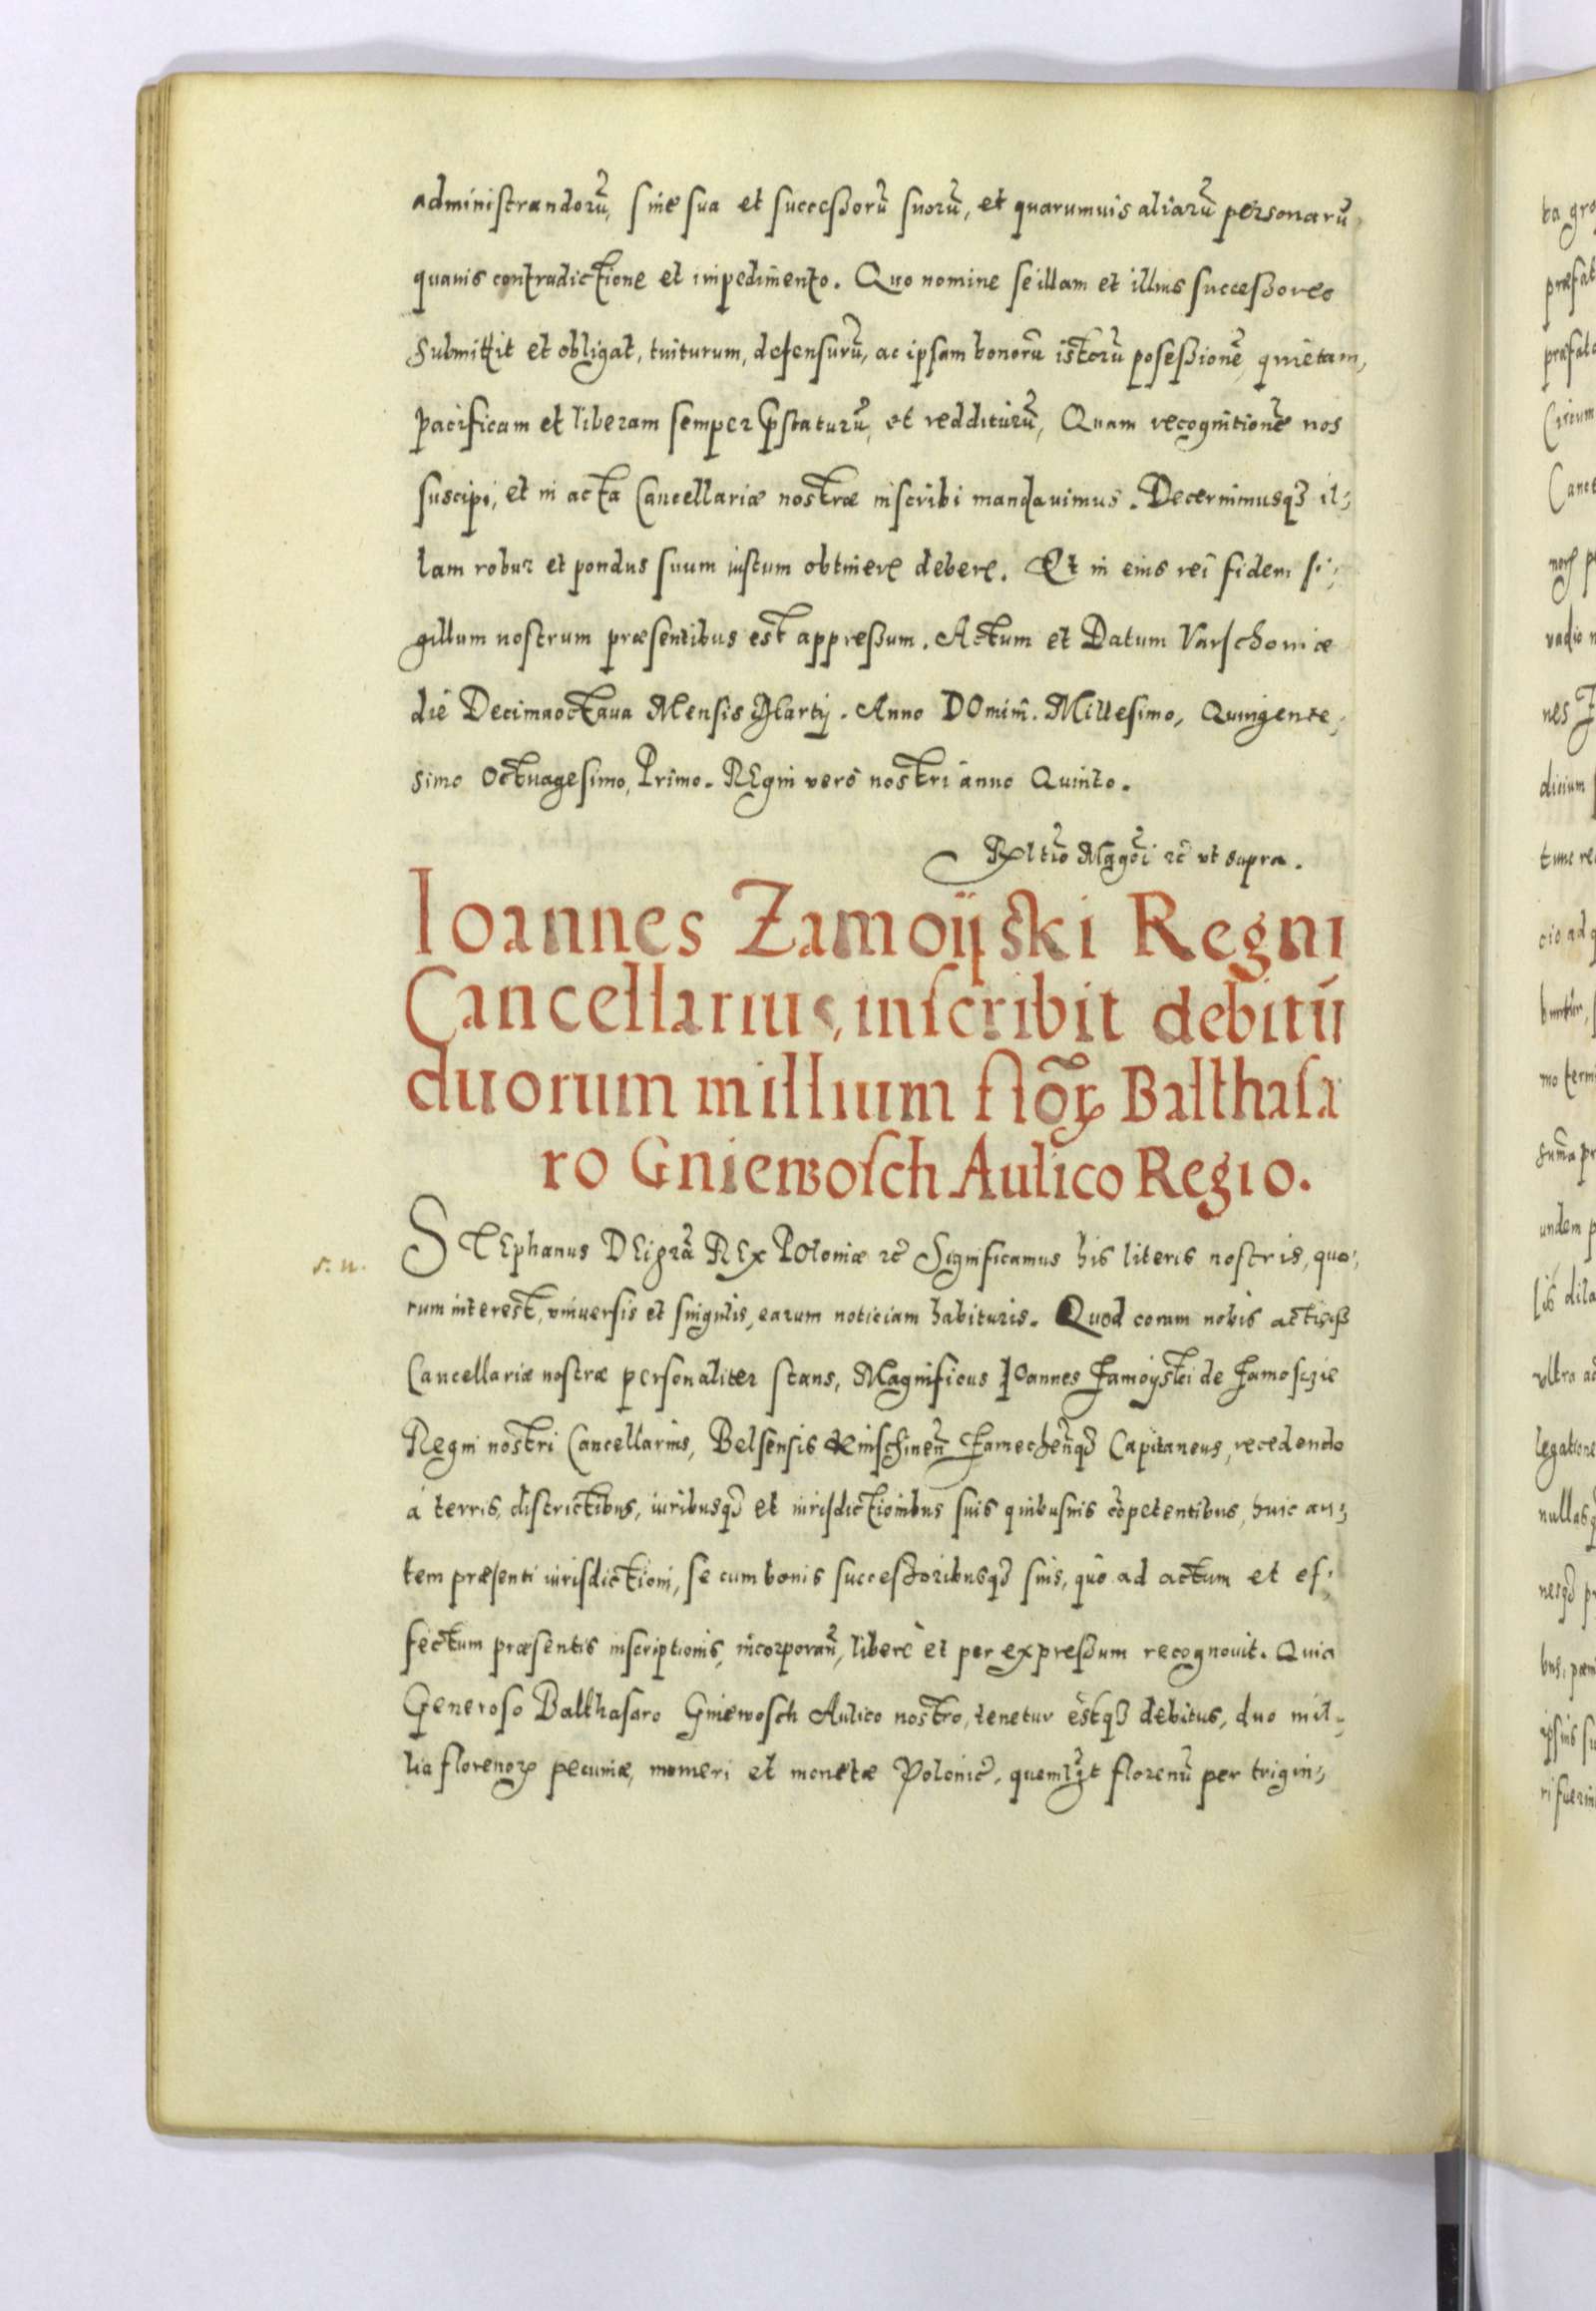 administrandorū, sine sua et successorū suorū, et quarumuis aliarū personarū
quauis contradictione et impedimento. Quo nomine se illam et illius successores
submittit et obligat, tuiturum, defensurū, ac ipsam bonorū istorū posessionē, quietam,
pacificam et liberam semper p̄staturū, et redditurū, Quam recognitionē nos
suscipi, et in acta Cancellariæ nostræ inscribi mandauimus. Decernimusqȝ il-
lam robur et pondus suum iustum obtinere debere. Et in eius rei fidem si-
gillum nostrum præsentibus est appressum. Actum et Datum Varschouiæ
die Decimaoctaua Mensis Martij. Anno DOmini. Millesimo, Quingente-
simo Octuagesimo, Primo. REgni vero nostri anno Quinto.
Rxltio Mggci ꝛc̄ vt supra.
Ioannes Zamoijski Regni
Cancellarius, inscribit debitū
duorum millium flōꝝ Balthasa
ro Gniewosch Aulico Regio.
s. n.
STEphanus DEi grā REx POloniæ ꝛc̄ Significamus his literis nostris, quo-
rum interest, vniuersis et singulis, earum noticiam habituris. Quod coram nobis actisqȝ
Cancellariæ nostræ personaliter stans, Magnificus IOannes Zamoyski de Zamosczie
Regni nostri Cancellarius, Belsensis Zamechen̄qȝ Capitaneus, recedendo
à terris, districtibus, iuribusqȝ et iurisdictionibus suis quibusuis cōpetentibus, huic au-
tem præsenti iurisdictioni, se cum bonis successoribusqȝ suis, quo ad actum et ef-
fectum præsentis inscriptionis, incorporan̄, liberè et per expressum recognouit. Quia
Generoso Balthasaro Gniewosch Aulico nostro, tenetur estqȝ debitus, duo mil-
lia florenoꝝ pecuniæ, numeri et monetæ Polonic̄, quemlꝫt florenū per trigin-